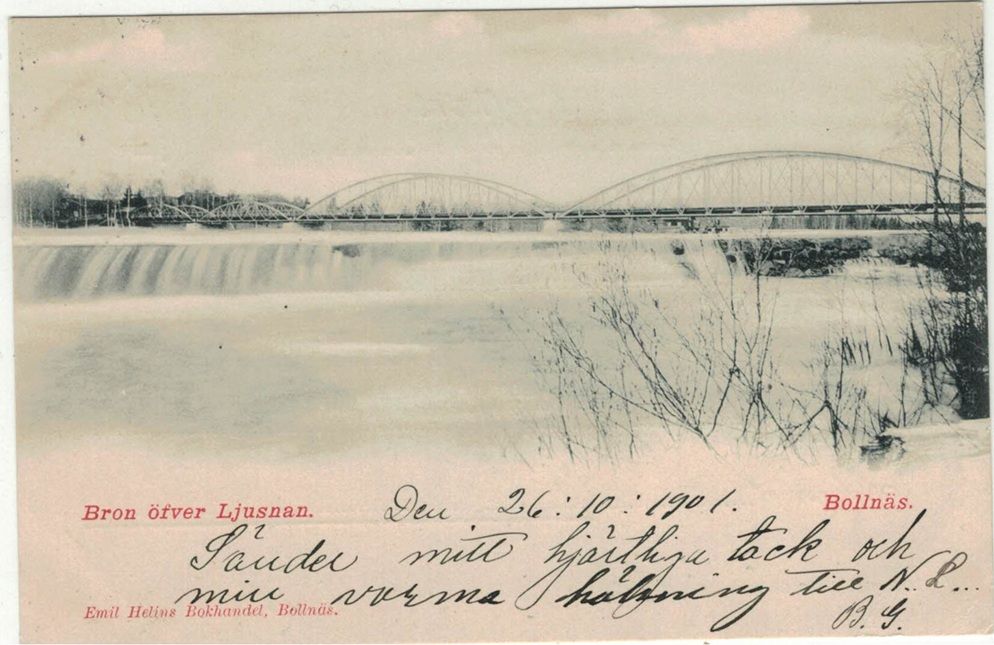 Bron öfver Ljusnan.
Den 26:10:1901.
Bollnäs.
Sänder mitt hjärtliga tack och
min varma hälsning till N. L...
B. G.
Emil Helins Bokhandel, Bollnäs.